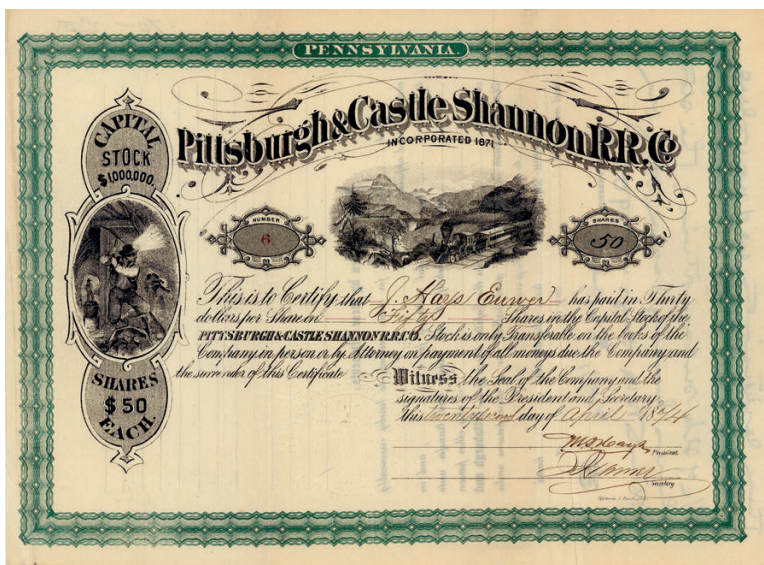 PENNSYLVANIA.
Pittsburgh & Castle Shannon R.R. Co
INCORPORATED 1871
CAPITAL
STOCK
$1,000,000.
NUMBER
6
SHARES
50
This is to Certify that J. Hays Eurwer has paid in Thirty
dollars per Share in Fifty Shares in the Capital Stock of the
PITTSBURGH & CASTLE SHANNON R.R. CO. Stock is only Transferable on the books of the
Company in person or by Attorney on payment of all moneys due the Company and
the surrender of this Certificate
Witness the Seal of the Company and the
signatures of the President and Secretary
this twenty second day of April 1874
SHARES
$50
EACH
President
Secretary